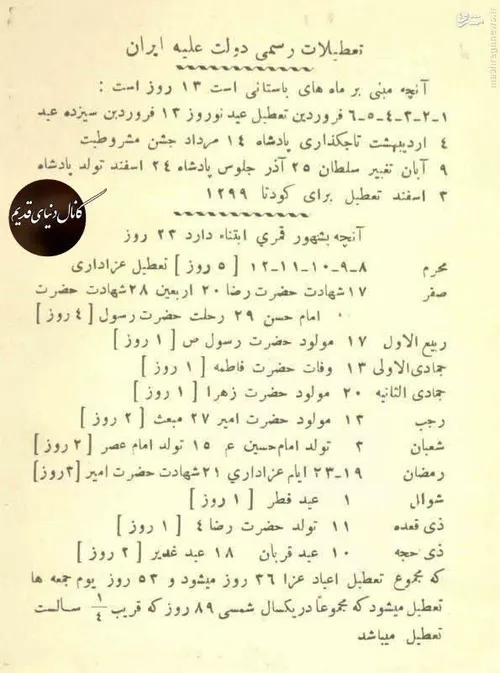 تعطیلات رسمی دولت علیه ایران
آنچه مبنی بر ماه های باستانی است ۱۳ روز است :
۱-۲-۳-۴-۵-۶ فروردین تعطیل عید نوروز ۱۳ فروردین سیزده عید
۴ اردیبهشت تاجگذاری پادشاه ۱۴ مرداد جشن مشروطیت
۹ آبان تغییر سلطان ۲۵ آذر جلوس پادشاه ۲۴ اسفند تولد پادشاه
۳ اسفند تعطیل برای کودتا ۱۲۹۹
آنچه بشهور قمري ابتناء دارد ۲۳ روز
محرم ۸-۹-۱۰-۱۱-۱۲ [ ۵ روز ] تعطیل عزاداری
صفر ۱۷ شهادت حضرت رضا ۲۰ اربعین ۲۸ شهادت حضرت
امام حسن ۲۹ رحلت حضرت رسول [ ۴ روز ]
ربیع الاول ۱۷ مولود حضرت رسول ص [ ۱ روز ]
جمادی الاولی ۱۳ وفات حضرت فاطمه [ ۱ روز ]
جمادی الثانیه ۲۰ مولود حضرت زهرا [ ۱ روز ]
رجب ۱۳ مولود حضرت امیر ۲۷ مبعث [ ۲ روز ]
شعبان ۳ تولد امام حسین ع ۱۵ تولد امام عصر [ ۲ روز ]
رمضان ۱۹-۲۳ ایام عزاداري ۲۱ شهادت حضرت امیر [ ۳ روز ]
شوال ۱ عید فطر [ ۱ روز ]
ذی قعده ۱۱ تولد حضرت رضا ع [ ۱ روز ]
ذی حجه ۱۰ عید قربان ۱۸ عید غدیر [ ۲ روز ]
که مجموع تعطیل اعیاد عزا ۳۶ روز میشود و ۵۳ روز یوم جمعه ها
تعطیل میشود که مجموعاً دریکسال شمسی ۸۹ روز که قریب ۱/۴ سالست
تعطیل میباشد
کانال دنیای قدیم
مشرق
mashreghnews.ir